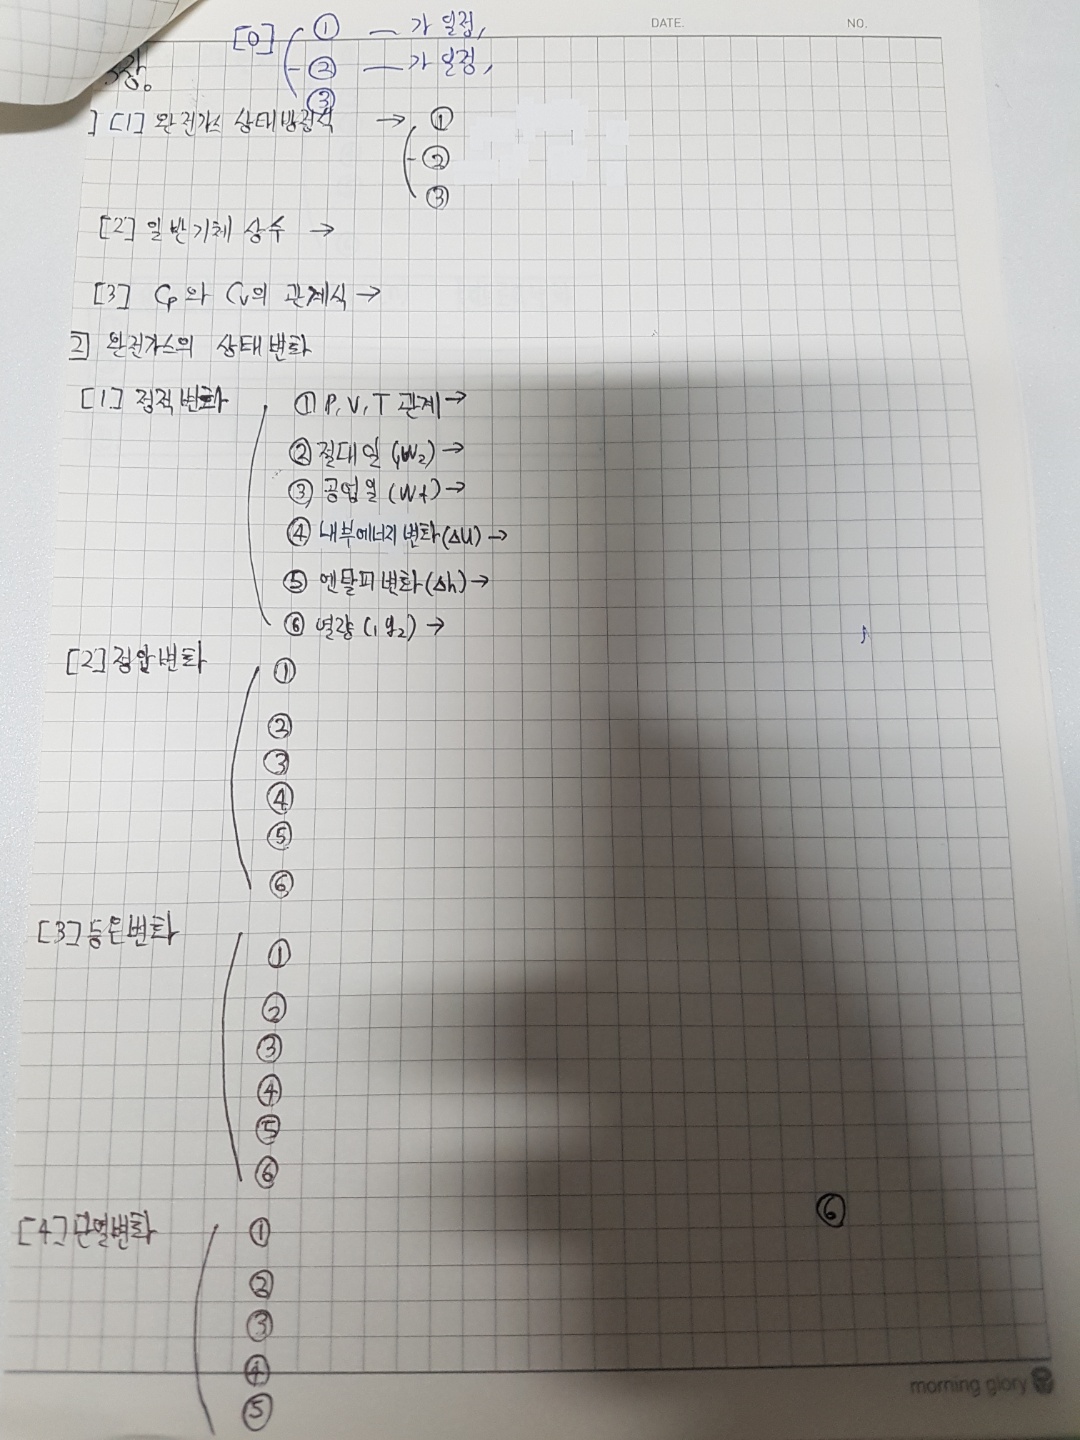 DATE. NO.
[0] ① __ 가 일정,
② __ 가 일정,
③
장.
[1] 완전가스 상태방정식 → ①
②
③
[2] 일반기체 상수 →
[3] Cp와 Cv의 관계식 →
2] 완전가스의 상태변화
[1] 정적변화 ① P, V, T 관계→
② 절대일 (₁W₂) →
③ 공업일 (Wt) →
④ 내부에너지 변화(ΔU) →
⑤ 엔탈피 변화(Δh) →
⑥ 열량 (₁q₂) →
[2] 정압변화 ①
②
③
④
⑤
⑥
[3] 등온변화 ①
②
③
④
⑤
⑥
⑥
[4] 단열변화 ①
②
③
④
⑤
morning glory